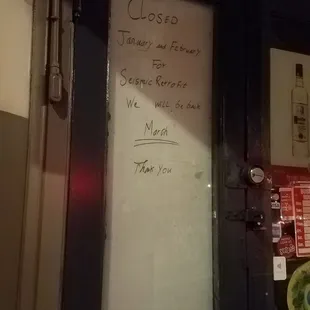 Closed
January and February
For
Seismic Retrofit
We will be back
March
Thank you